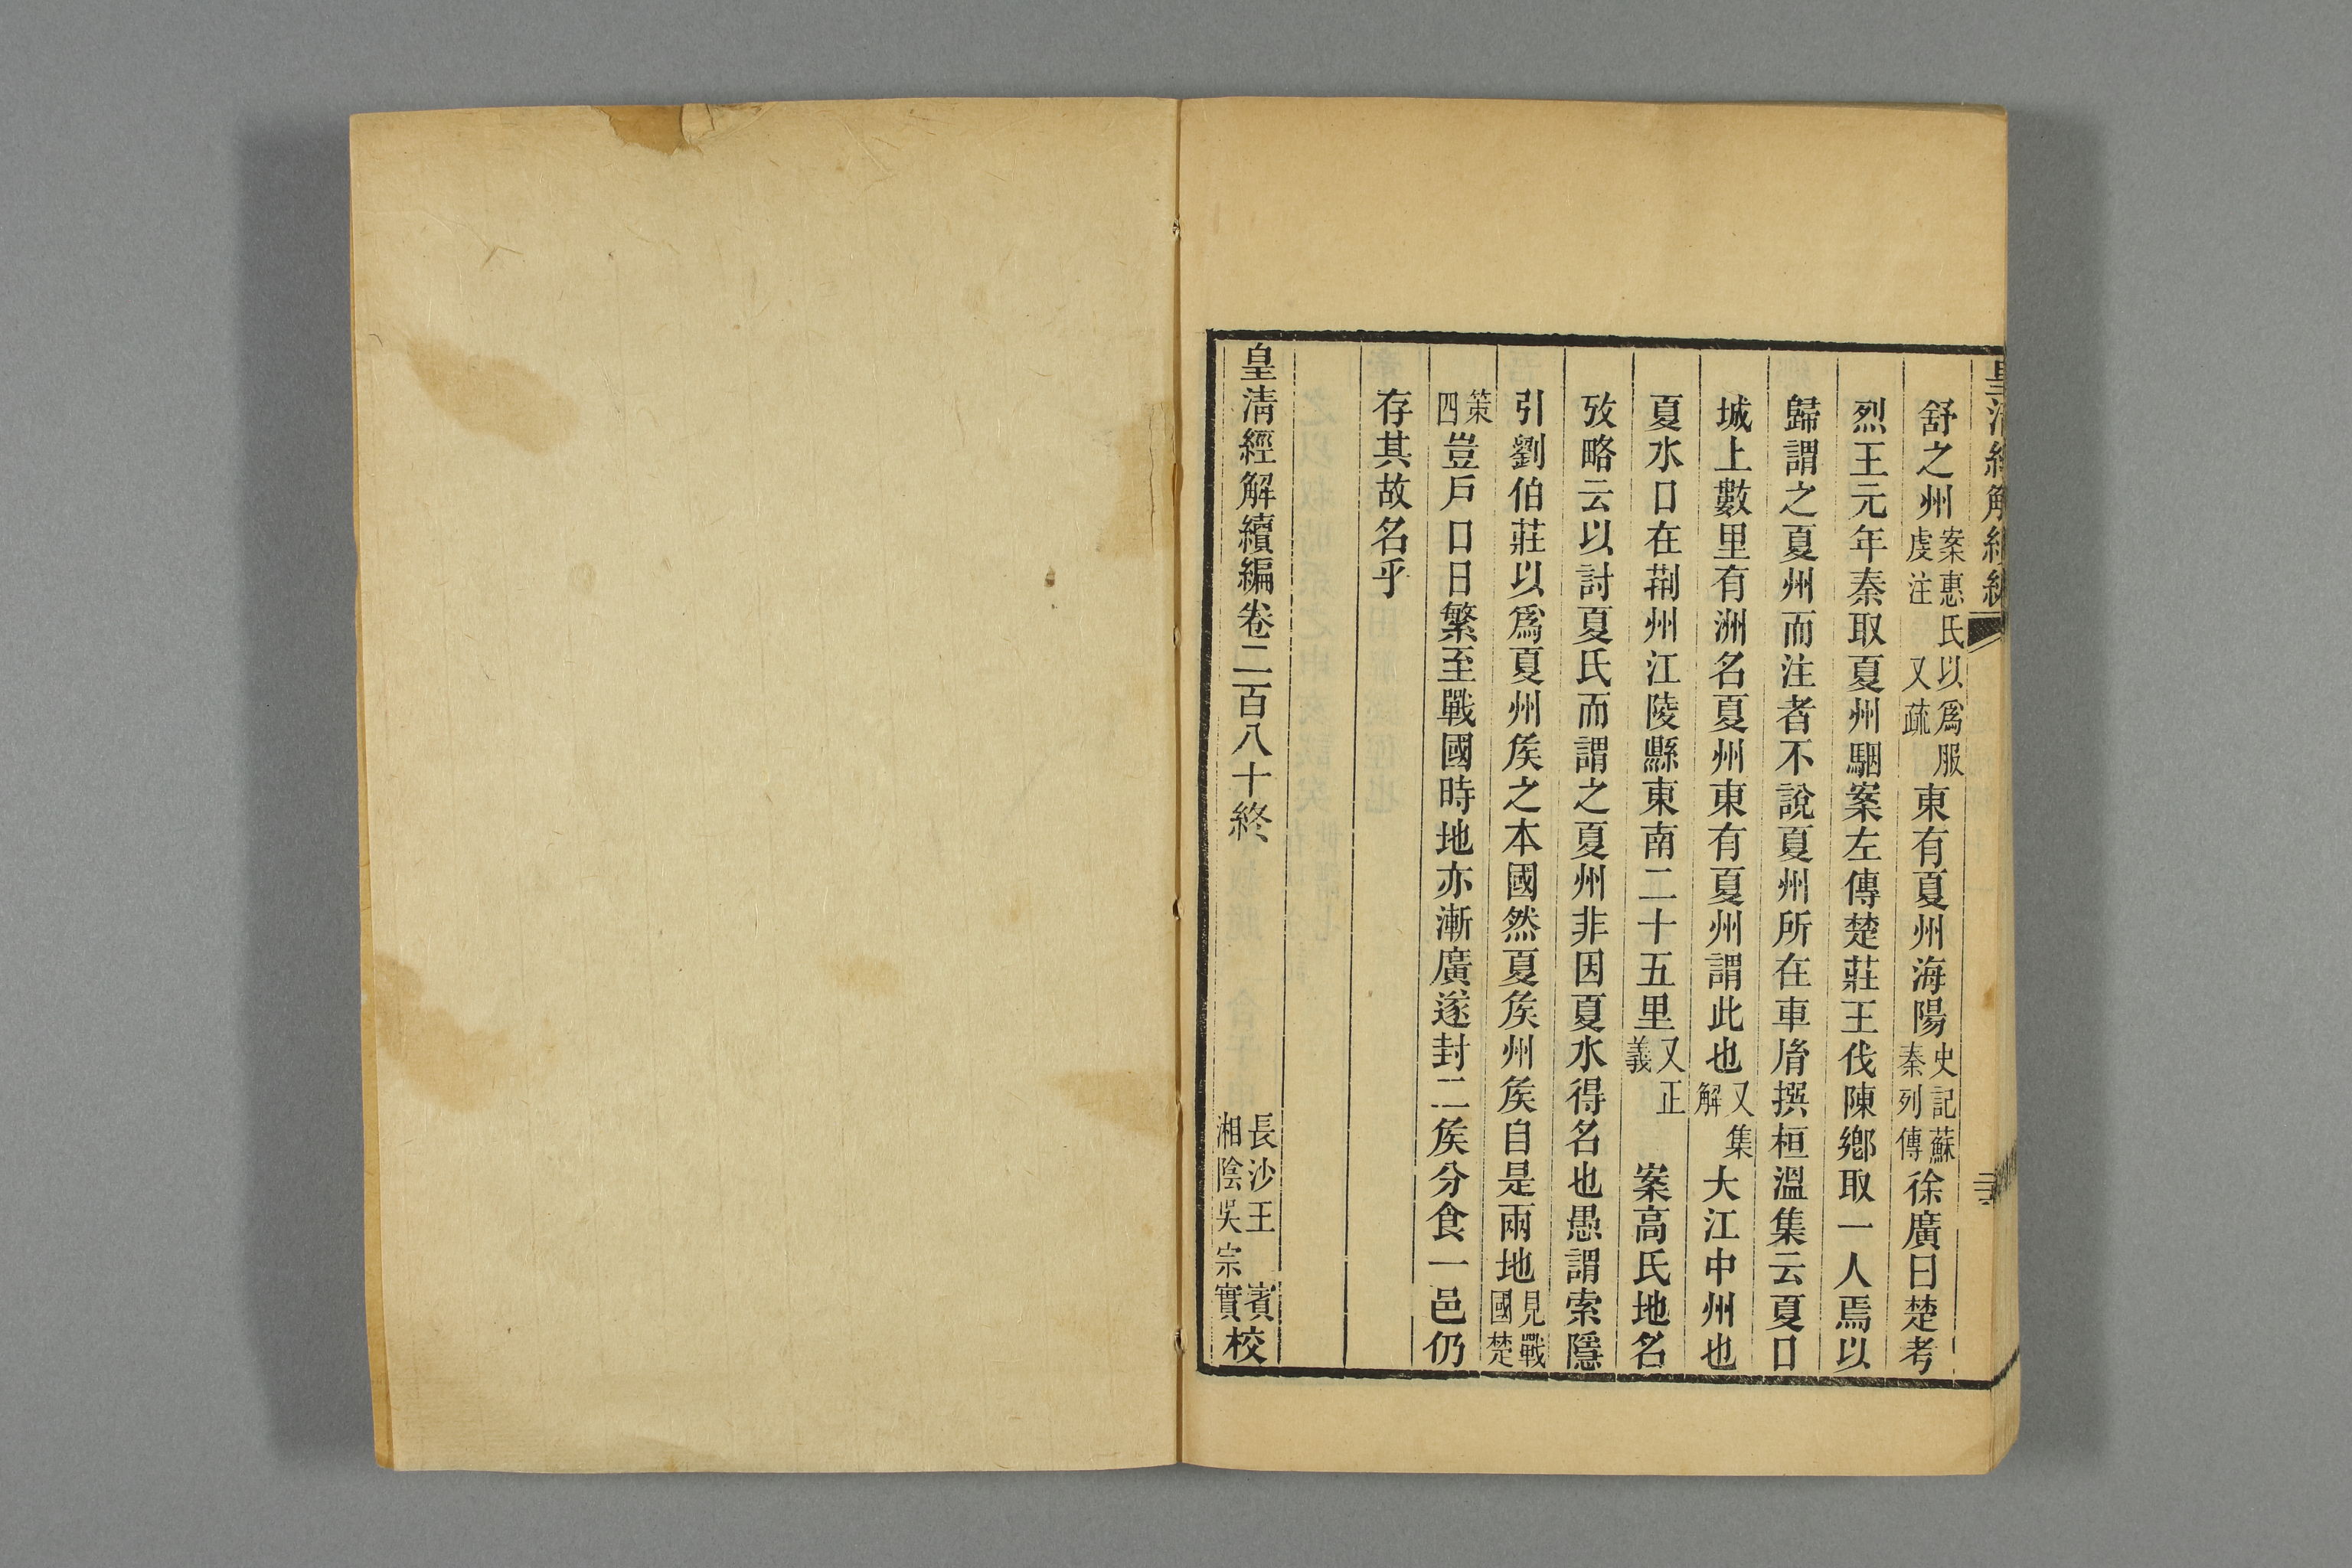 皇清經解續編
三
舒之州案惠氏以爲服虔注又疏東有夏州海陽史記蘇秦列傳徐廣曰楚考
烈王元年秦取夏州駰案左傳楚莊王伐陳鄉取一人焉以
歸謂之夏州而注者不說夏州所在車胤撰桓溫集云夏口
城上數里有洲名夏州東有夏州謂此也又集解大江中州也
夏水口在荆州江陵縣東南二十五里又正義案高氏地名
攷略云以討夏氏而謂之夏州非因夏水得名也愚謂索隱
引劉伯莊以爲夏州矦之本國然夏矦州矦自是兩地見戰國楚
策四豈戶口日繁至戰國時地亦漸廣遂封二矦分食一邑仍
存其故名乎
皇清經解續編卷二百八十終
長沙王賓
湘陰吳宗實校